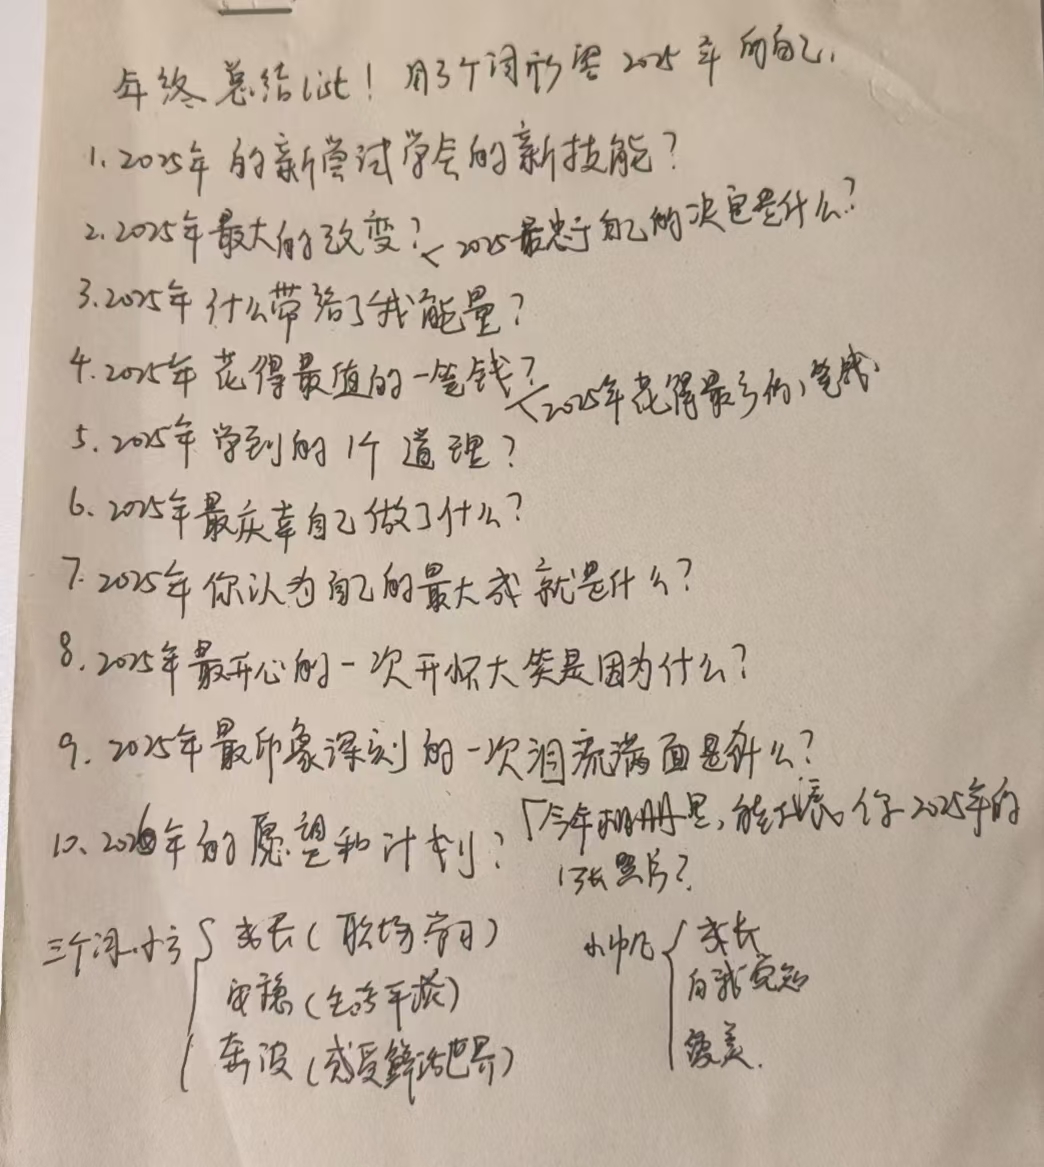 年终总结list! 用3个词形容2025年的自己,
1.2025年的新尝试学会的新技能?
2.2025年最大的改变?<2025最忠于自己的决定是什么?
3.2025年什么带给了我能量?
4.2025年花得最值的一笔钱?<2025年花得最多的1笔钱
5.2025年学到的1个道理?
6.2025年最庆幸自己做了什么?
7.2025年你认为自己的最大成就是什么?
8.2025年最开心的一次开怀大笑是因为什么?
9.2025年最印象深刻的一次泪流满面是什么?
10.2026年的愿望和计划?「今年相册里,能代表你2025年的
1张照片?
三个词 成长(职场学习) 成长
安稳(生活平淡) 自我觉知
奔波(感受鲜活世界) 变美.